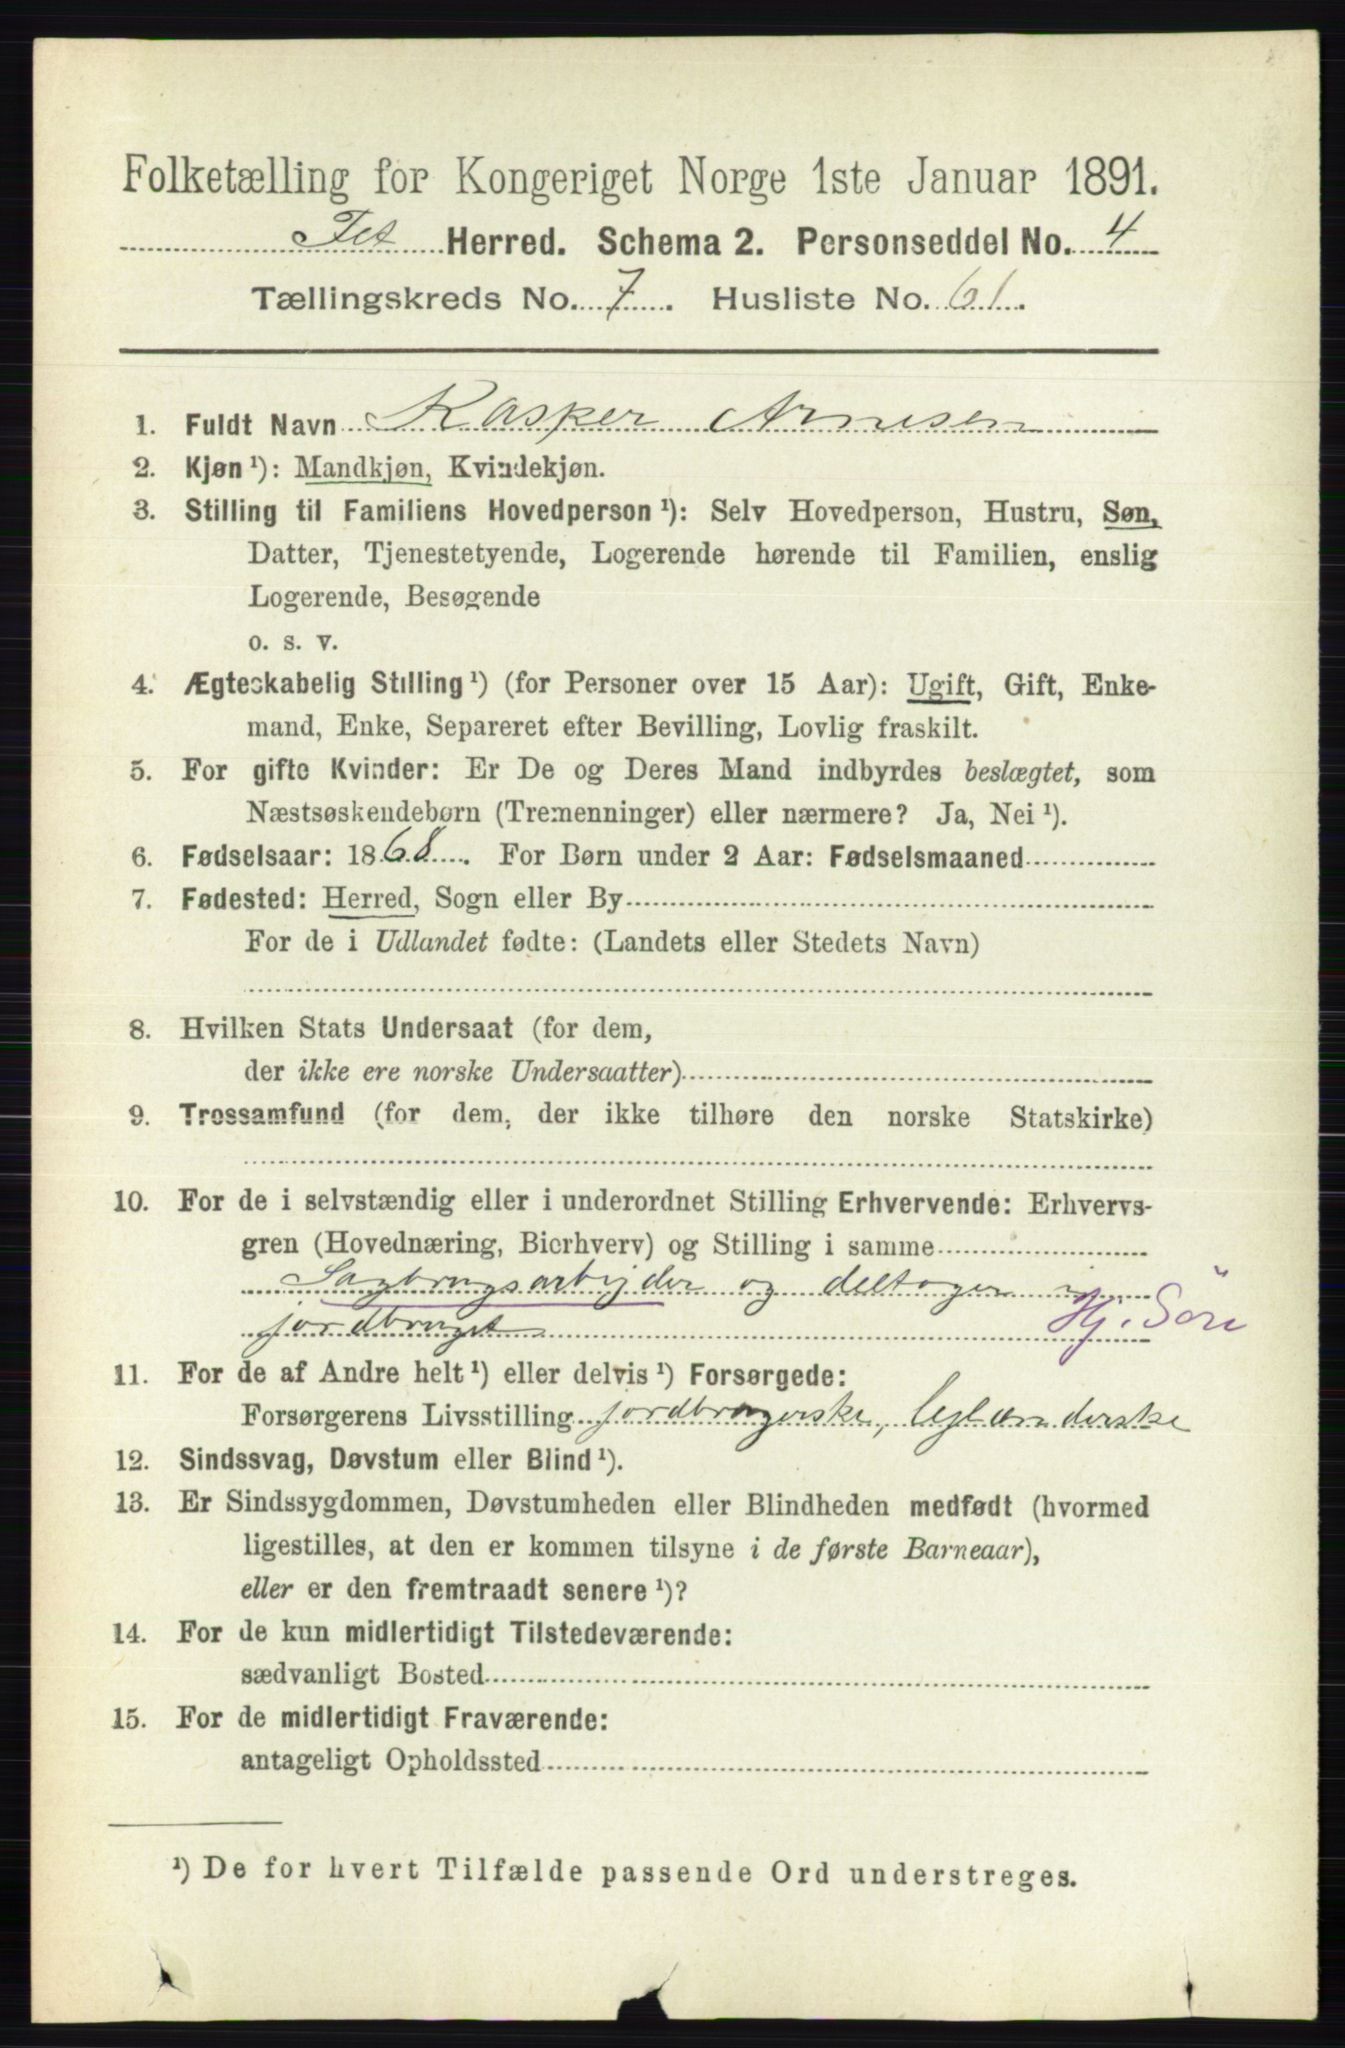 Folketælling for Kongeriget Norge 1ste Januar 1891.
Fet Herred. Schema 2. Personseddel No. 4
Tællingskreds No. 7. Husliste No. 61.
1. Fuldt Navn Kasper Arnesen
2. Kjøn ¹): Mandkjøn, Kvindekjøn.
3. Stilling til Familiens Hovedperson ¹): Selv Hovedperson, Hustru, Søn,
Datter, Tjenestetyende, Logerende hørende til Familien, enslig
Logerende, Besøgende
o. s. v.
4. Ægteskabelig Stilling ¹) (for Personer over 15 Aar): Ugift, Gift, Enke-
mand, Enke, Separeret efter Bevilling, Lovlig fraskilt.
5. For gifte Kvinder: Er De og Deres Mand indbyrdes beslægtet, som
Næstsøskendebørn (Tremenninger) eller nærmere? Ja, Nei ¹).
6. Fødselsaar: 1868. For Børn under 2 Aar: Fødselsmaaned
7. Fødested: Herred, Sogn eller By
For de i Udlandet fødte: (Landets eller Stedets Navn)
8. Hvilken Stats Undersaat (for dem,
der ikke ere norske Undersaatter)
9. Trossamfund (for dem, der ikke tilhøre den norske Statskirke)
10. For de i selvstændig eller i underordnet Stilling Erhvervende: Erhvervs-
gren (Hovednæring, Bierhverv) og Stilling i samme
Sagbrugsarbejder og deltager i
jordbruget Hj. Sön
11. For de af Andre helt ¹) eller delvis ¹) Forsørgede:
Forsørgerens Livsstilling jordbrugerske, leglænderske
12. Sindssvag, Døvstum eller Blind ¹).
13. Er Sindssygdommen, Døvstumheden eller Blindheden medfødt (hvormed
ligestilles, at den er kommen tilsyne i de første Barneaar),
eller er den fremtraadt senere ¹)?
14. For de kun midlertidigt Tilstedeværende:
sædvanligt Bosted
15. For de midlertidigt Fraværende:
antageligt Opholdssted
¹) De for hvert Tilfælde passende Ord understreges.